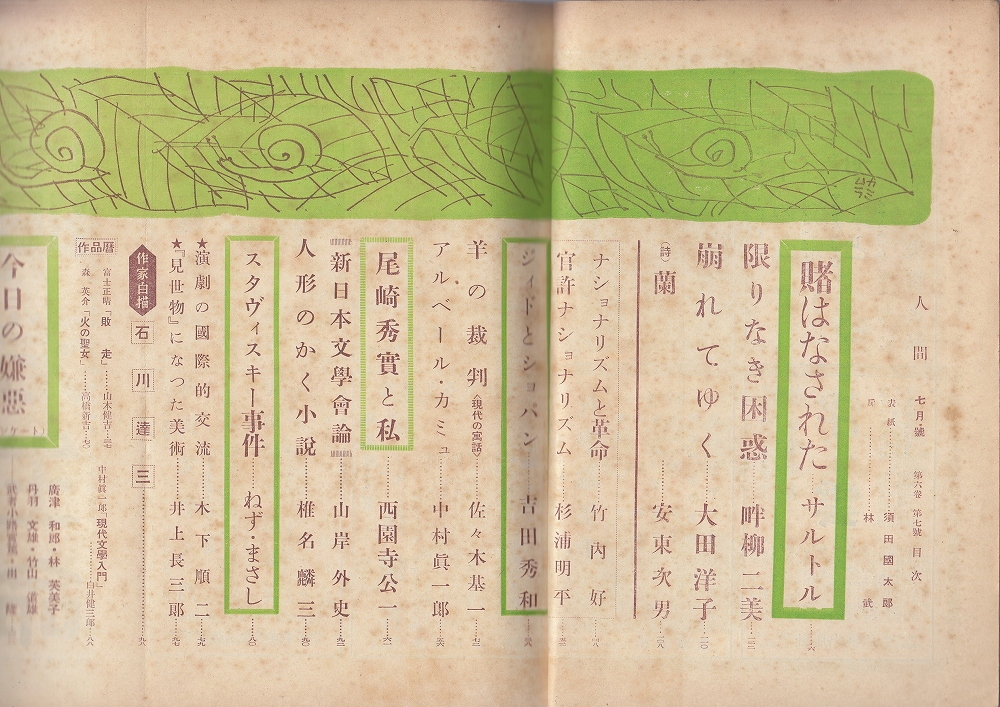 人間 七月號 第六卷 第七號 目次
表紙………須田國太郎
扉………林 武
賭はなされた……サルトル
限りなき困惑……畔柳二美
崩れてゆく……大田洋子
(詩)蘭……安東次男
ナショナリズムと革命……竹內好
官許ナショナリズム……杉浦明平
ジィドとショパン……吉田秀和
羊の裁判〈現代の寓話〉……佐々木基一
アルベール・カミュ……中村眞一郎
尾崎秀實と私……西園寺公一
新日本文學會論……山岸外史
人形のかく小説……椎名麟三
スタヴィスキー事件……ねず・まさし
★演劇の國際的交流……木下順二
★『見世物』になつた美術……井上長三郎
作家自描 石川達三
作品曆
富士正晴「敗走」……山本健吉
森 英介「火の聖女」……高橋新吉
中村眞一郎「現代文學入門」……白井健三郎
今日の嫌惡
廣津和郎・林芙美子
丹羽文雄・竹山道雄